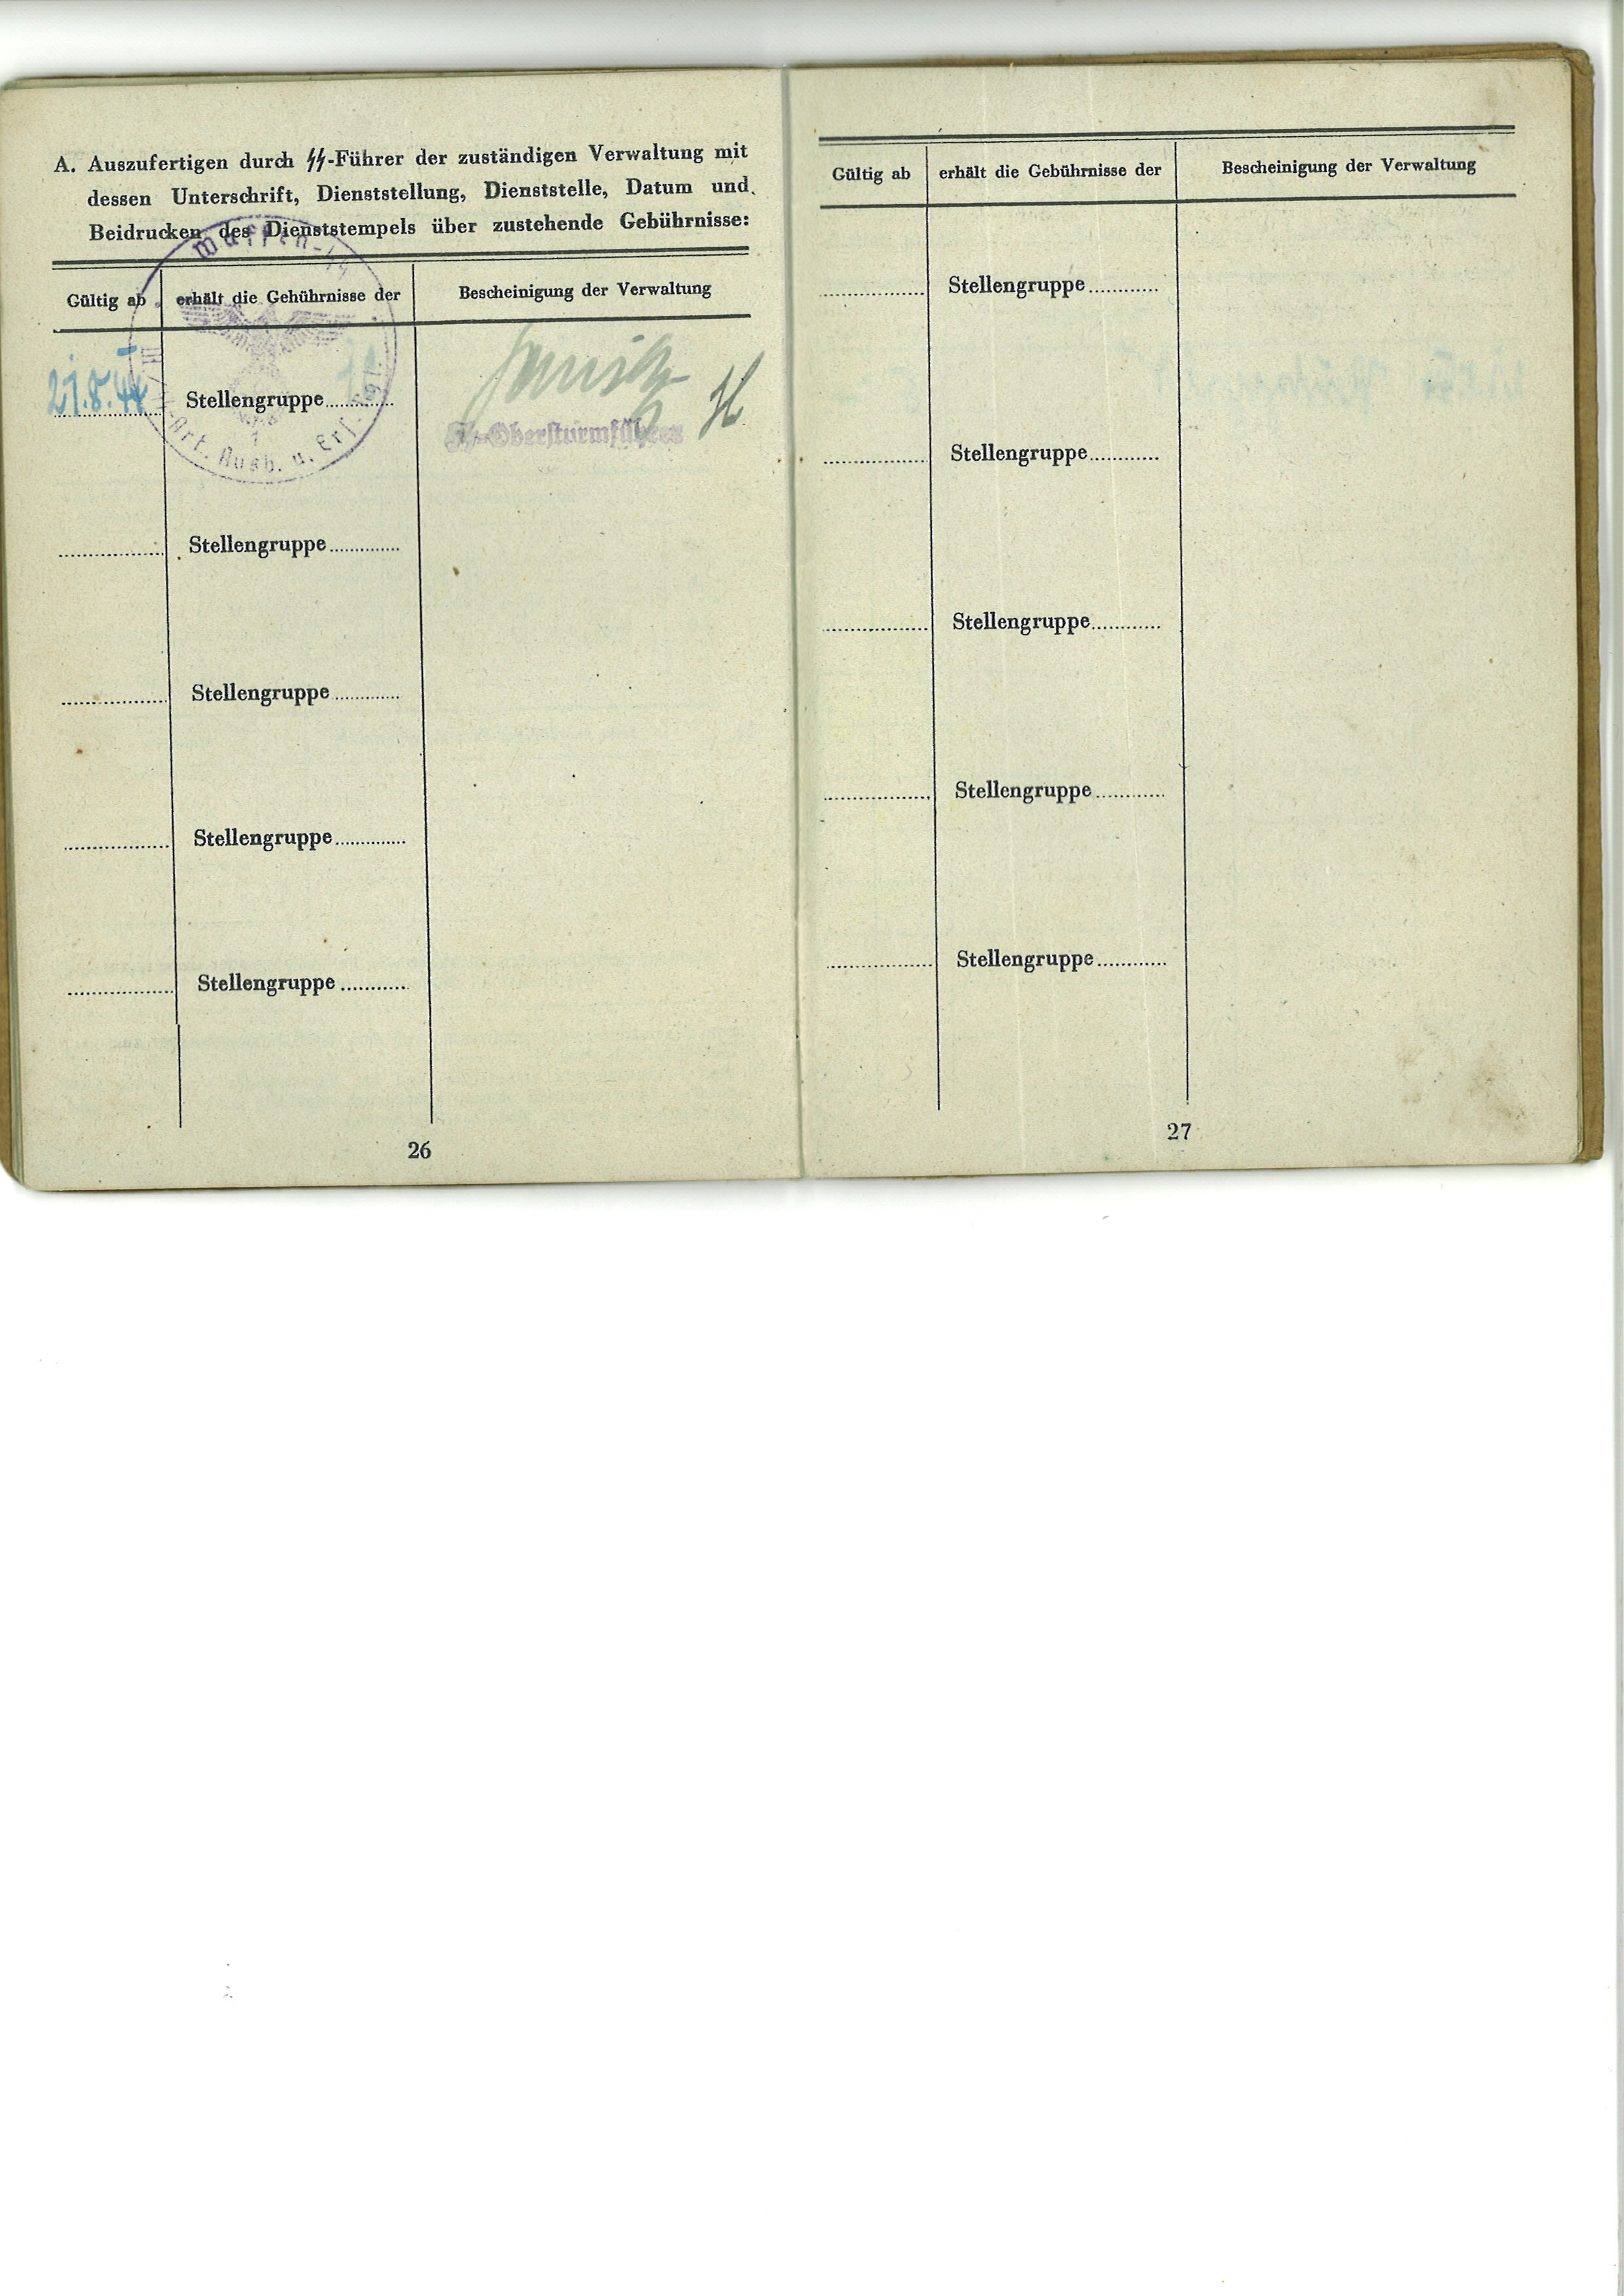 A. Auszufertigen durch ᛋᛋ-Führer der zuständigen Verwaltung mit
dessen Unterschrift, Dienststellung, Dienststelle, Datum und
Beidrucken des Dienststempels über zustehende Gebührnisse:
Gültig ab erhält die Gehührnisse der Bescheinigung der Verwaltung
Waffen-ᛋᛋ
21.8.44 Stellengruppe
ᛋᛋ-Obersturmführer
Art. Ausb. u. Ers.
Stellengruppe
Stellengruppe
Stellengruppe
Stellengruppe
26
Gültig ab erhält die Gebührnisse der Bescheinigung der Verwaltung
Stellengruppe
Stellengruppe
Stellengruppe
Stellengruppe
Stellengruppe
27